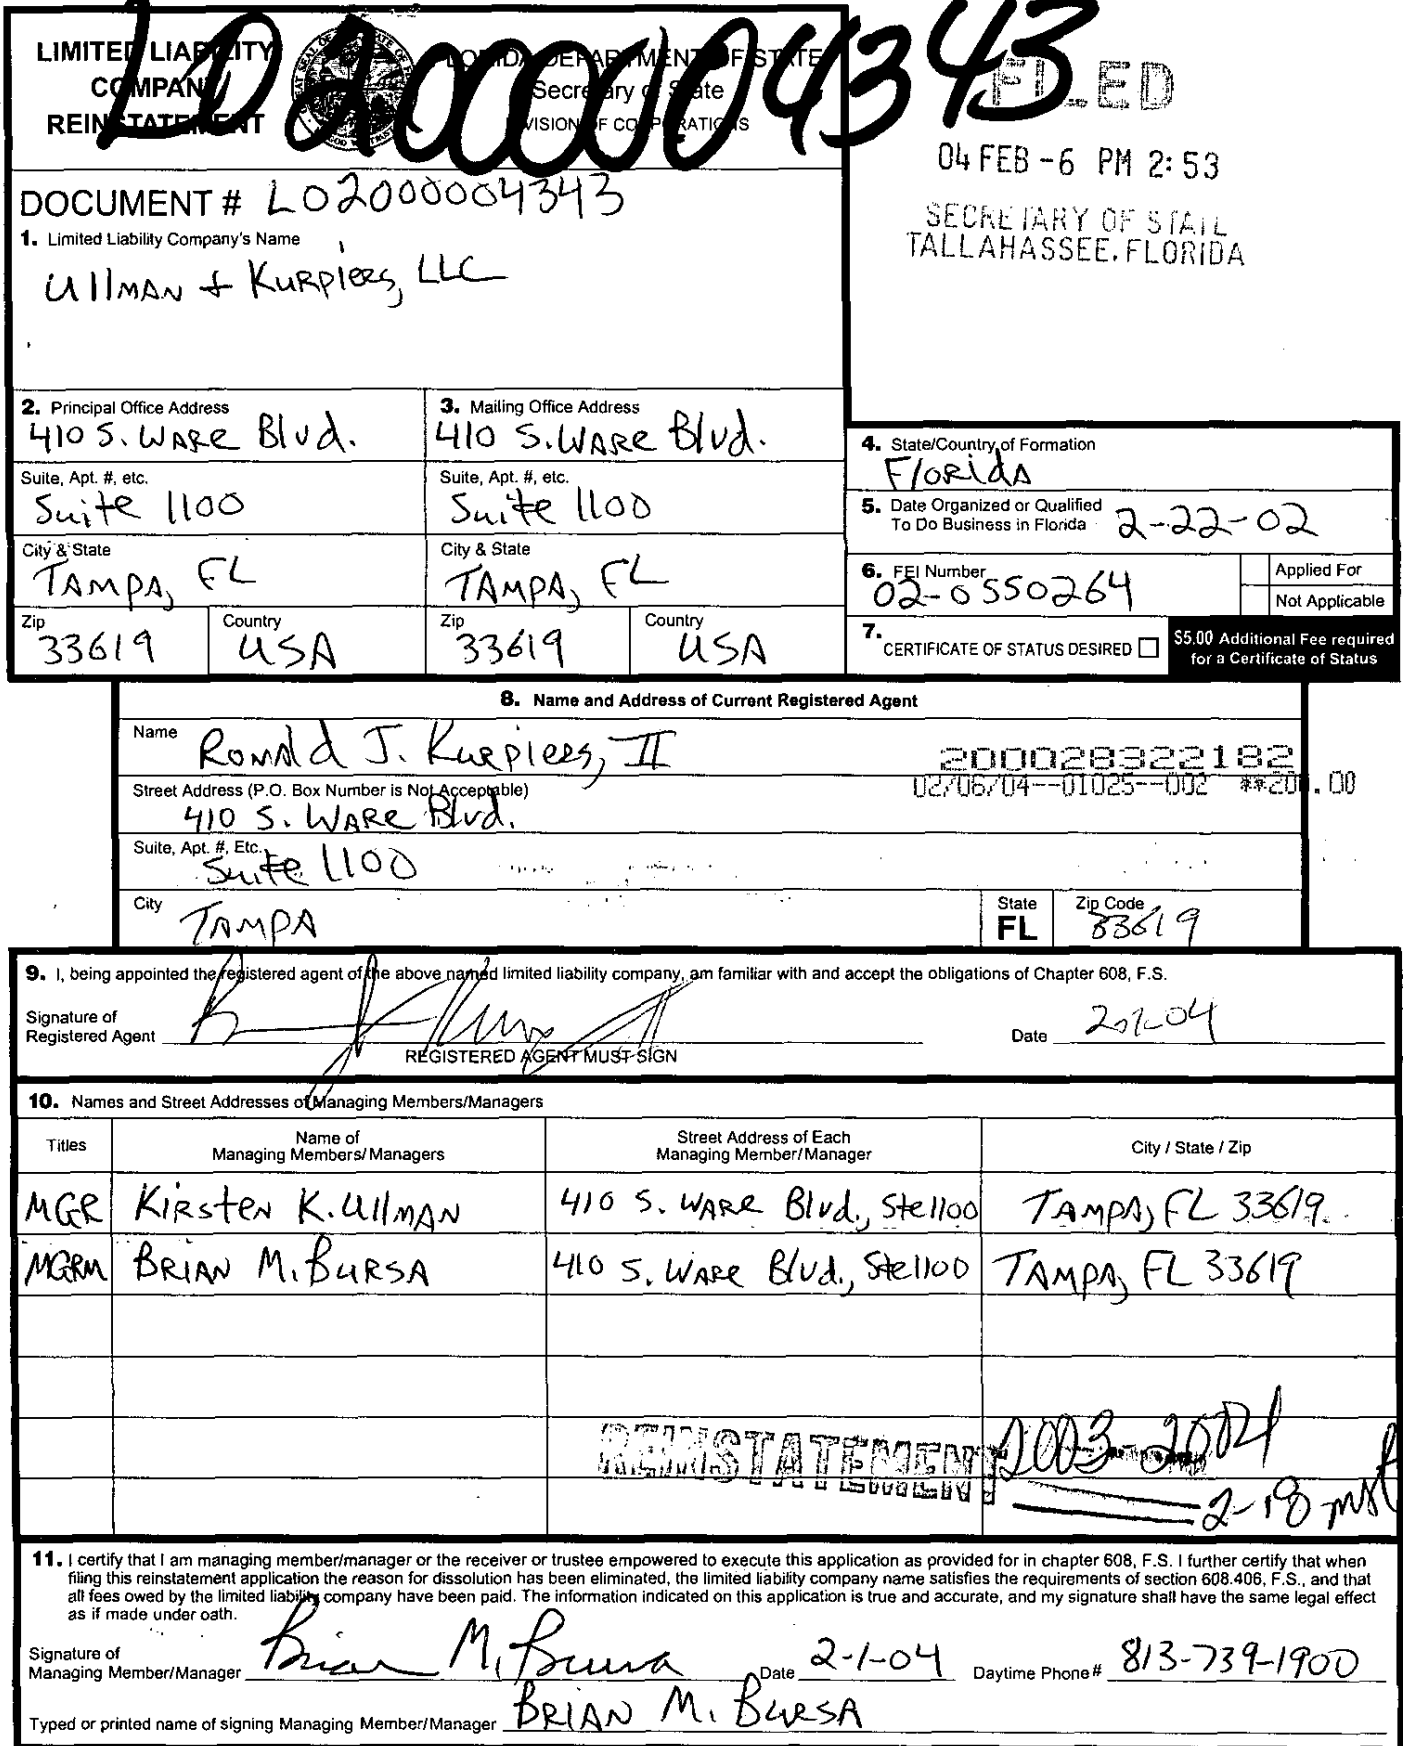 L02000004343
LIMITED LIABILITY
COMPANY
REINSTATEMENT
FLORIDA DEPARTMENT OF STATE
Secretary of State
DIVISION OF CORPORATIONS
FILED
04 FEB -6 PM 2:53
SECRETARY OF STATE
TALLAHASSEE, FLORIDA
DOCUMENT # L02000004343
1. Limited Liability Company's Name
Ullman + Kurpiers, LLC
2. Principal Office Address
410 S. Ware Blvd.
3. Mailing Office Address
410 S. Ware Blvd.
Suite, Apt. #, etc.
Suite 1100
Suite, Apt. #, etc.
Suite 1100
City & State
Tampa, FL
City & State
Tampa, FL
Zip
33619
Country
USA
Zip
33619
Country
USA
4. State/Country of Formation
Florida
5. Date Organized or Qualified
To Do Business in Florida 2-22-02
6. FEI Number
02-0550264
Applied For
Not Applicable
7. CERTIFICATE OF STATUS DESIRED
$5.00 Additional Fee required
for a Certificate of Status
8. Name and Address of Current Registered Agent
Name Ronald J. Kurpiers, II
200028322182
02/06/04--01025--002 **200.00
Street Address (P.O. Box Number is Not Acceptable)
410 S. Ware Blvd.
Suite, Apt. #, Etc.
Suite 1100
City Tampa
State
FL
Zip Code
33619
9. I, being appointed the registered agent of the above named limited liability company, am familiar with and accept the obligations of Chapter 608, F.S.
Signature of
Registered Agent
Date
REGISTERED AGENT MUST SIGN
10. Names and Street Addresses of Managing Members/Managers
Titles
Name of
Managing Members/Managers
Street Address of Each
Managing Member/Manager
City / State / Zip
MGR Kirsten K. Ullman 410 S. Ware Blvd., Ste 1100 Tampa, FL 33619
MGRM Brian M. Bursa 410 S. Ware Blvd., Ste 1100 Tampa, FL 33619
REINSTATEMENT 2003-2004
2-18
11. I certify that I am managing member/manager or the receiver or trustee empowered to execute this application as provided for in chapter 608, F.S. I further certify that when
filing this reinstatement application the reason for dissolution has been eliminated, the limited liability company name satisfies the requirements of section 608.406, F.S., and that
all fees owed by the limited liability company have been paid. The information indicated on this application is true and accurate, and my signature shall have the same legal effect
as if made under oath.
Signature of
Managing Member/Manager Brian M. Bursa Date 2-1-04 Daytime Phone # 813-739-1900
Typed or printed name of signing Managing Member/Manager Brian M. Bursa